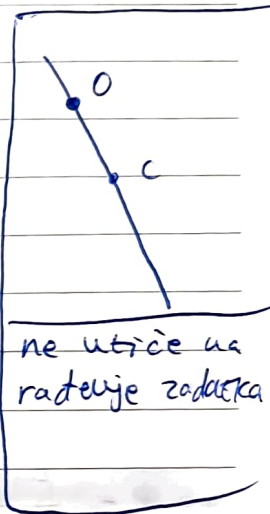 O
C
ne utiče na
rađenje zadatka